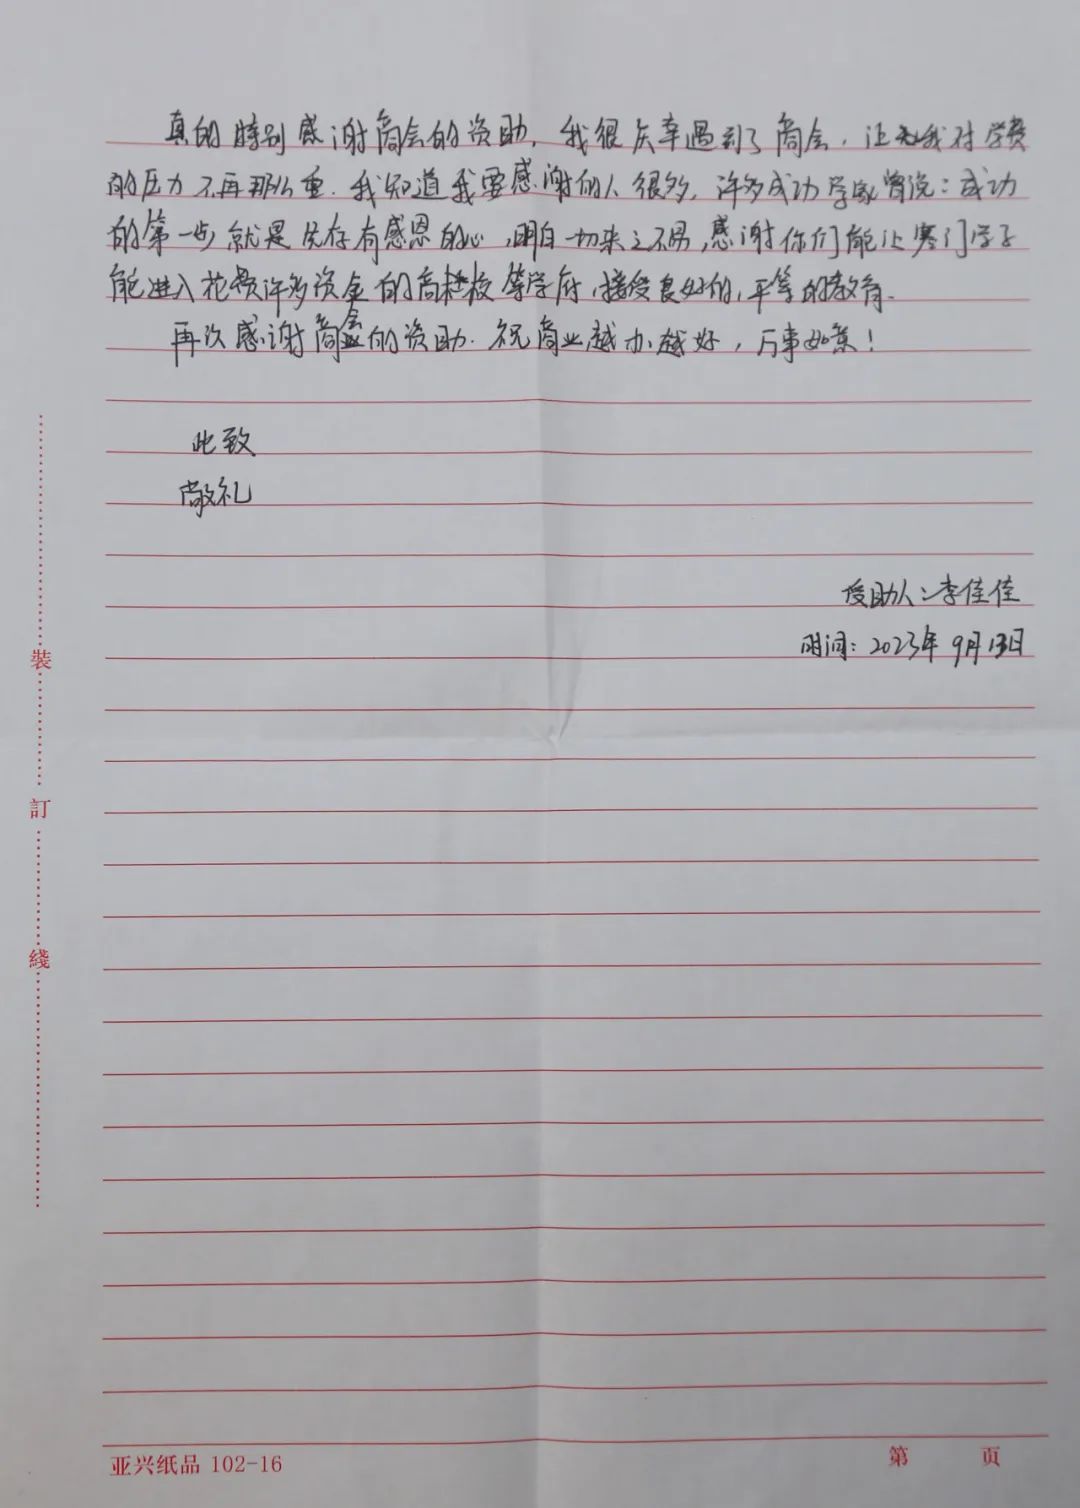 真的特别感谢商会的资助，我很庆幸遇到了商会，让我对学费
的压力不再那么重。我知道我要感谢的人很多，许多成功学家曾说：成功
的第一步就是先存有感恩的心，明白一切来之不易，感谢你们能让寒门学子
能进入花费许多资金的高校等学府，接受良好的，平等的教育。
再次感谢商会的资助。祝商业越办越好，万事如意！
此致
敬礼
受助人：李佳佳
时间：2023年9月13日
裝
訂
綫
亚兴纸品 102-16
第 页